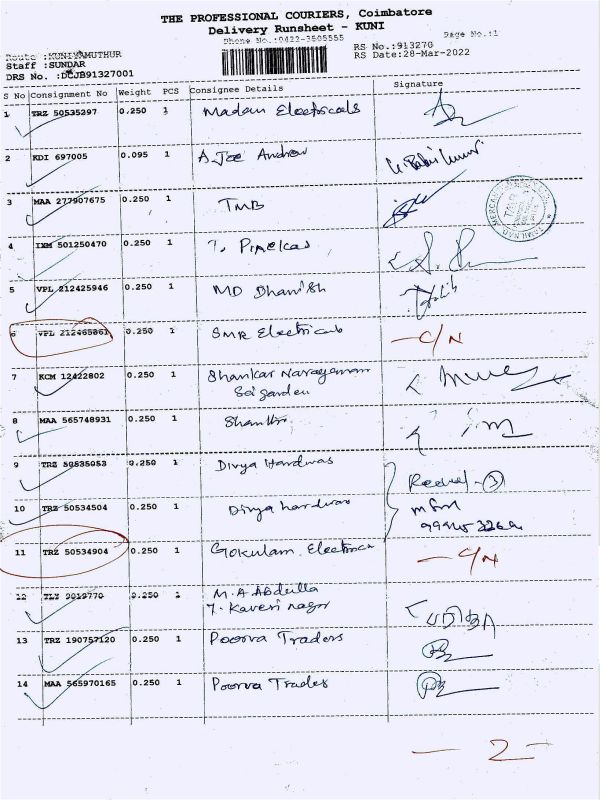 THE PROFESSIONAL COURIERS, Coimbatore
Delivery Runsheet - KUNI
Phone No.:0422-3505555
Page No.:1
Route :KUNIYAMUTHUR
RS No.:913270
Staff :SUNDAR
RS Date:28-Mar-2022
DRS No. :DCJB91327001
S No Consignment No Weight PCS Consignee Details Signature
1 TRZ 50535297 0.250 1 Madam Electricals
2 KDI 697005 0.095 1 A Joe Andrew
3 MAA 277907675 0.250 1 TMB
4 IXM 501250470 0.250 1 T.
5 VPL 212425946 0.250 1 MD Dhanish
6 VPL 212465861 0.250 1 SMR Electricals - C/N
7 KCM 12422802 0.250 1 Shankar Narayanan
Sai garden
8 MAA 565748931 0.250 1 Shanthi
9 TRZ 50535053 0.250 1 Divya Hardwas
10 TRZ 50534504 0.250 1 Divya hardwas
11 TRZ 50534904 0.250 1 Gokulam Electrica - C/N
12 0.250 1 M.A Abdulla
7. Kaveri nagar
13 TRZ 190757120 0.250 1 Poorva Traders
14 MAA 565970165 0.250 1 Poorva Trades
- 2 -